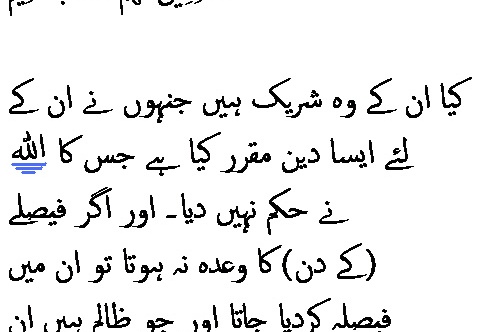 کیا ان کے وہ شریک ہیں جنہوں نے ان کے
لئے ایسا دین مقرر کیا ہے جس کا الله
نے حکم نہیں دیا۔ اور اگر فیصلے
(کے دن)کا وعدہ نہ ہوتا تو ان میں
فیصلہ کردیا جاتا اور جو ظالم ہیں ان